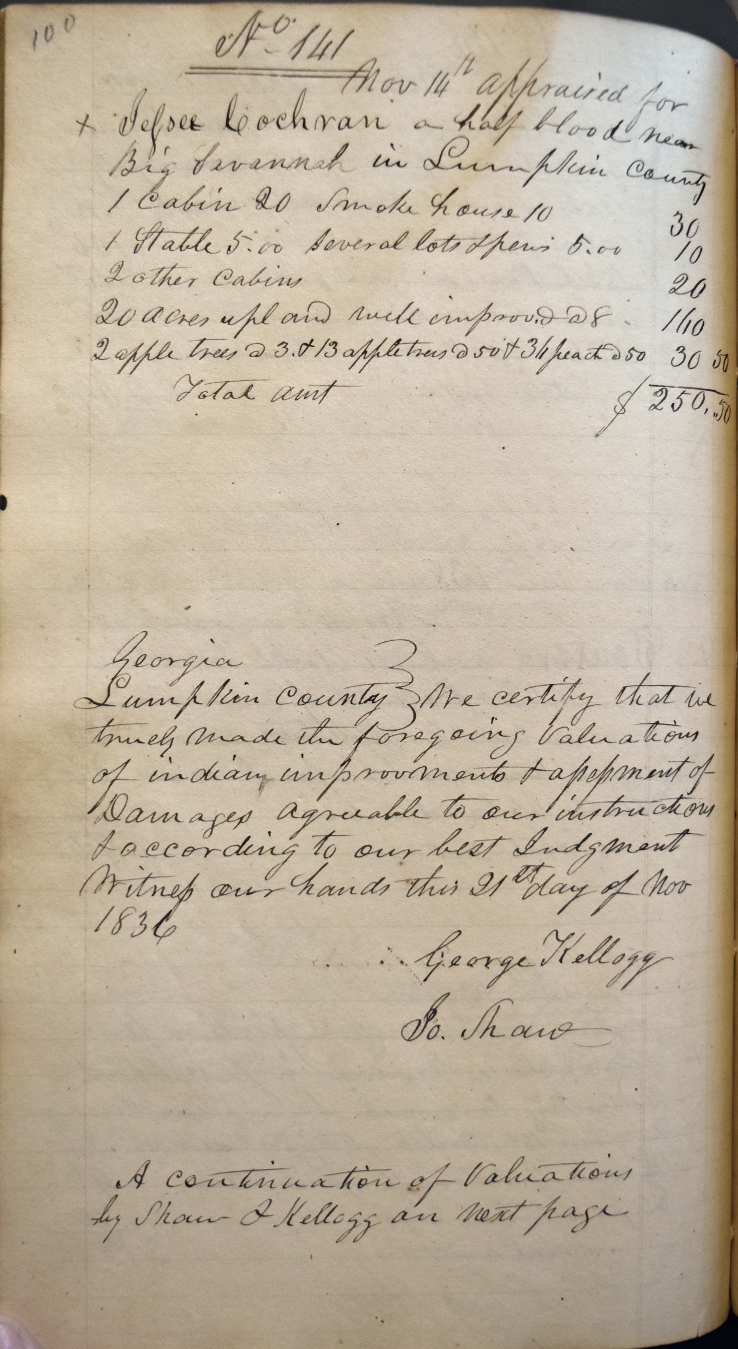 100
No 141
Nov 14th appraised for
+ Jessee Cochran a half blood near
Big Savannah in Lumpkin county
1 Cabin 20 Smoke house 10 30
1 Stable 5.00 several lots & pens 5.00 10
2 other Cabins 20
20 acres upland well improv.d @ 8 160
2 apple trees @ 3. & 13 apple trees @ 50 & 36 peach @ 50 30 50
Total amt $ 250.50
Georgia
Lumpkin county } We certify that we
truely made the foregoing Valuations
of indian improvments & assessment of
Damages agreeable to our instructions
& according to our best Judgment
Witness our hands this 21st day of Nov
1836
George Kellogg
Jo. Shaw
A continuation of Valuations
by Shaw & Kellogg on next page